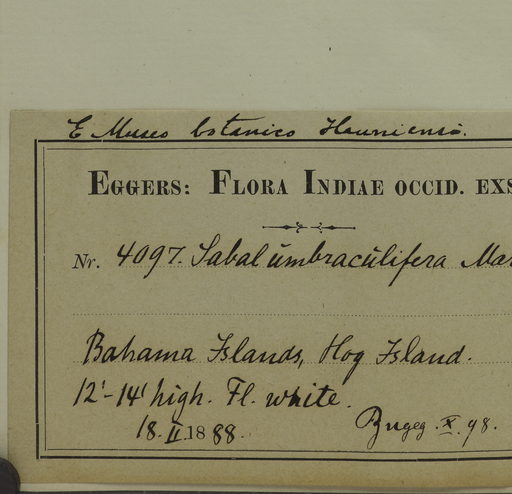 E Museo botanico Hauniensi.
EGGERS: FLORA INDIAE OCCID. EXS
Nr. 4097. Sabal umbraculifera Mar
Bahama Islands, Hog Island.
12'-14' high. Fl. white.
18. II. 1888.
X. 98.